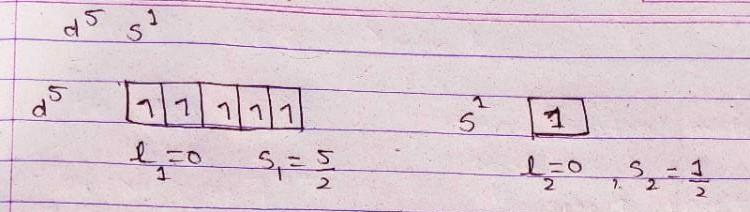 d⁵ s¹
d⁵ 1 1 1 1 1 s¹ 1
l₁=0 S₁=5/2 l₂=0 , S₂=1/2